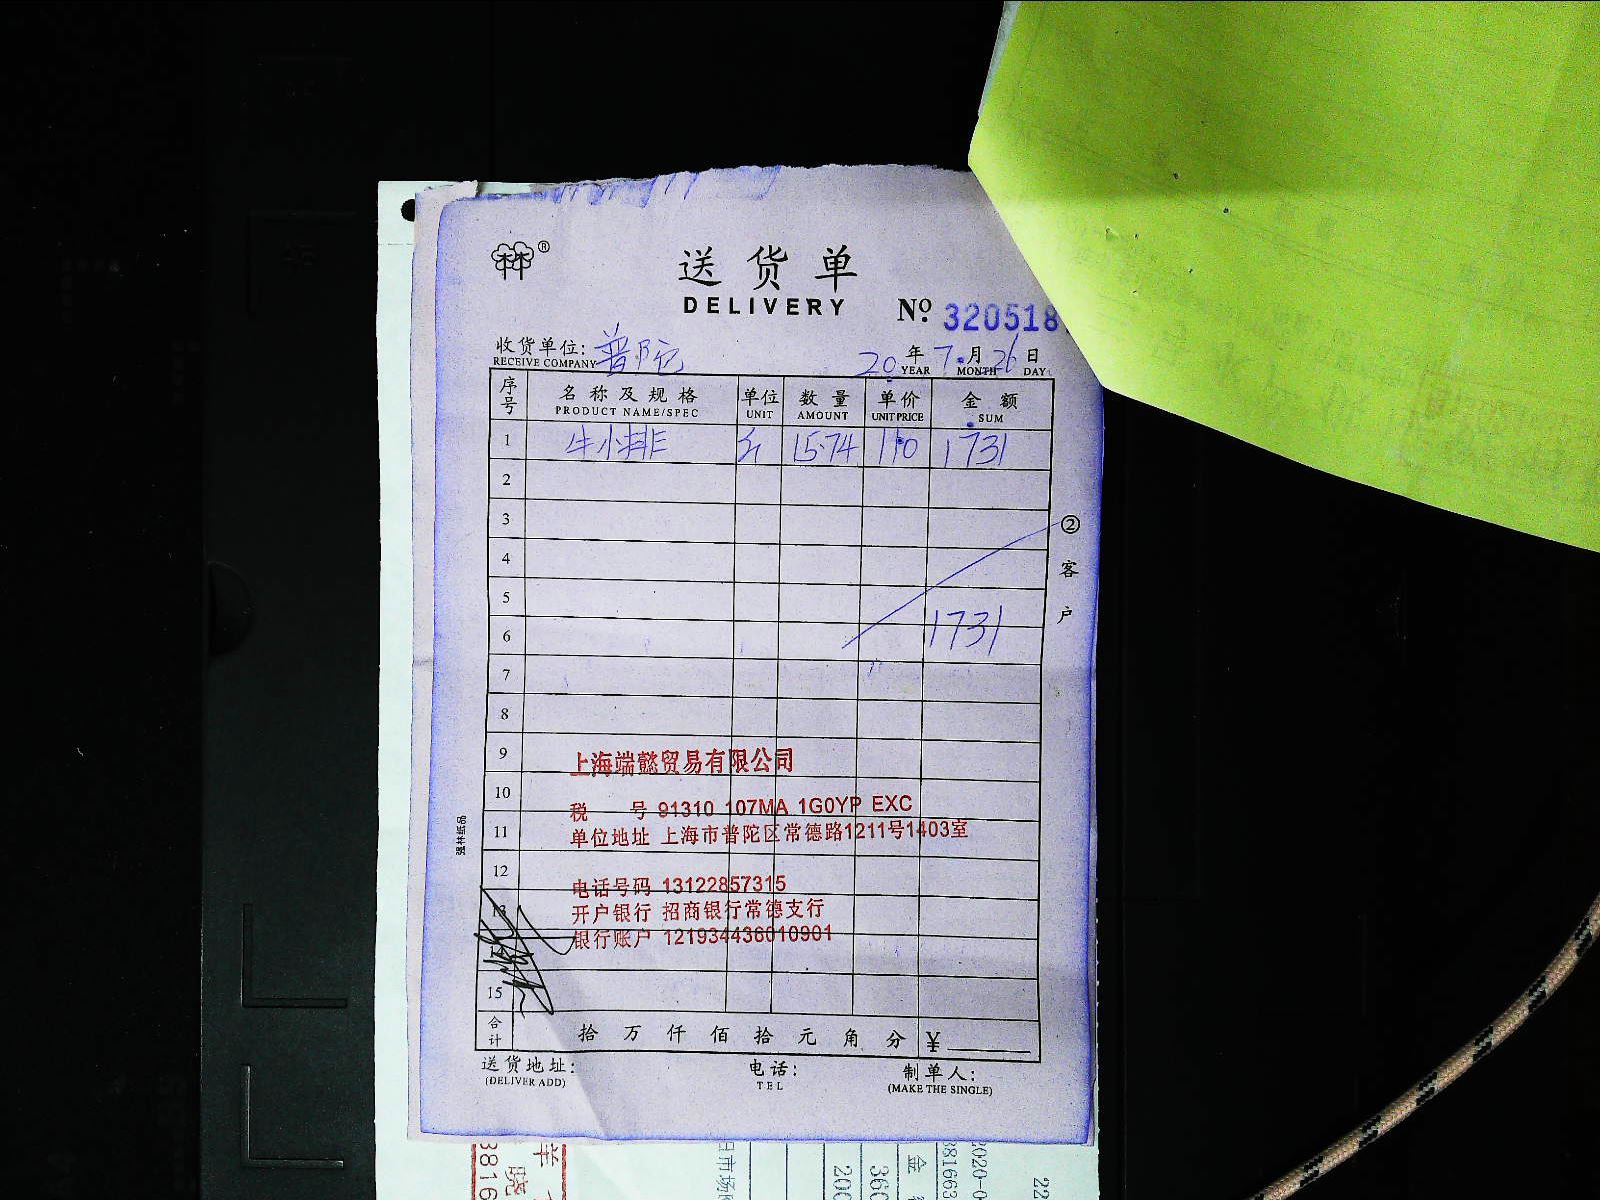 林®
送货单
DELIVERY
№ 320518
收货单位: 普陀 20 年 7 月 26 日
RECEIVE COMPANY YEAR MONTH DAY
序号 名称及规格 单位 数量 单价 金额
PRODUCT NAME/SPEC UNIT AMOUNT UNIT PRICE SUM
1 牛小排 斤 15.74 110 1731
2
3
4
5
6 1731
7
8
9
10
11
12
13
14
15
② 客户
上海端懿贸易有限公司
税 号 91310 107MA 1G0YP EXC
单位地址 上海市普陀区常德路1211号1403室
电话号码 13122857315
开户银行 招商银行常德支行
银行账户 121934436010901
强林纸品
合计 拾 万 仟 佰 拾 元 角 分 ¥
送货地址: 电话: 制单人:
(DELIVER ADD) TEL (MAKE THE SINGLE)